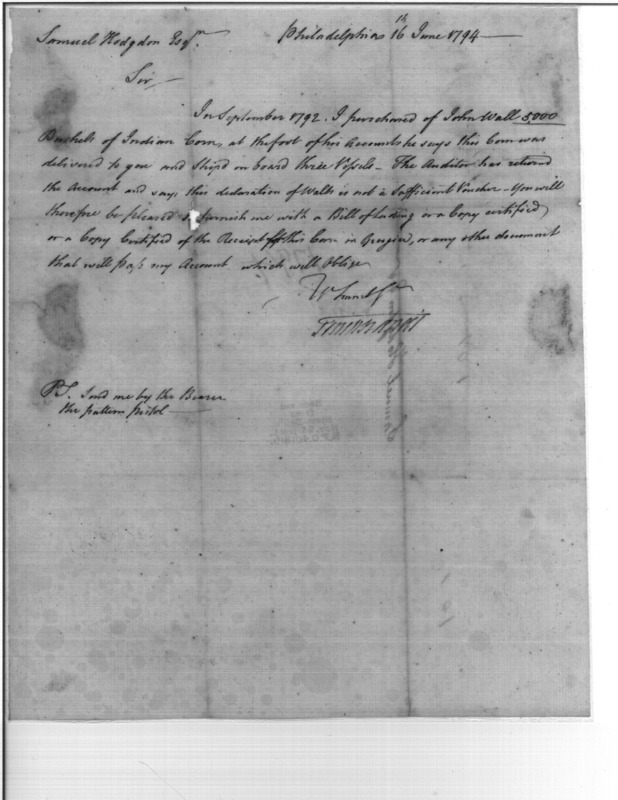 Samuel Hodgdon Esqr.
Philadelphia 16th June 1794
Sir
In September 1792. I purchased of John Wall 5,000
Bushels of Indian Corn, at the foot of his Accounts he says this Corn was
delivered to you and Ship'd on board three Vessels - The Auditor has returned
the Account and says this declaration of Walls is not a Sufficient Voucher - You will
therefore be pleased to furnish me with a Bill of Lading or a Copy certified,
or a Copy Certified of the Receipt of this Corn in, or any other document
that will pass my Account which will Oblige
Yr
PS. Send me by the Bearer
the pattern pistol